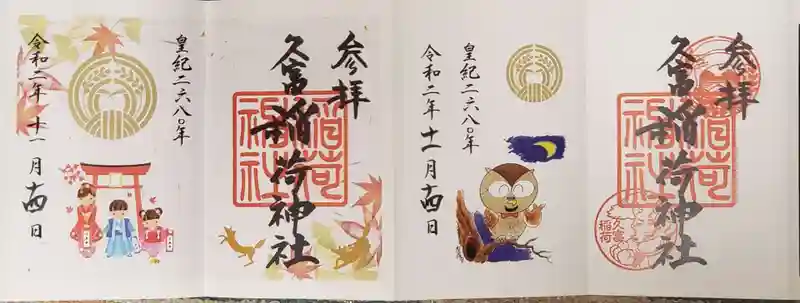 参拝
久富稲荷神社
稲荷
神社
皇紀二六八〇年
令和二年十一月十四日
参拝
久富稲荷神社
稲荷
神社
久富
稲荷
皇紀二六八〇年
令和二年十一月十四日